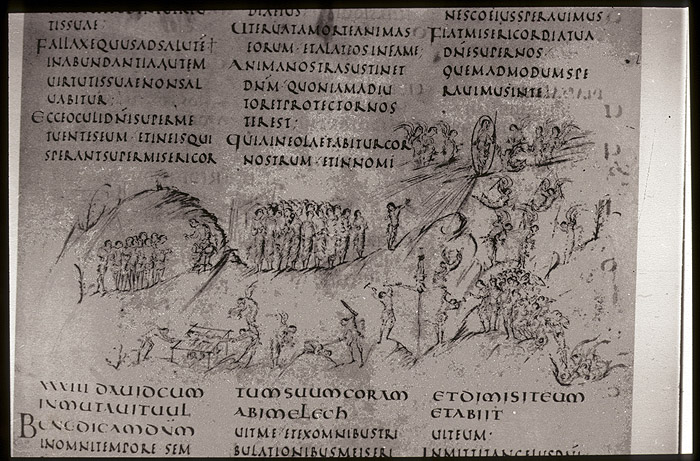 TISSUAE·
FALLAXEQUUSADSALUTĒ
INABUNDANTIAAUTEM
UIRTUTISSUAENONSAL
UABITUR·
ECCEOCULIDNĪSUPERME
TUENTESEUM·ETINEISQUI
SPERANTSUPERMISERICOR
UTERUATAMORTEANIMAS
EORUM·ETALATEOSINFAME·
ANIMANOSTRASUSTINET
DNM̄·QUONIAMADIU
TORETPROTECTORNOS
TEREST·
QUIAINEOLAETABITURCOR
NOSTRUM·ETINNOMI
NESCOEIUSSPERAUIMUS
FIATMISERICORDIATUA
DNESUPERNOS·
QUEMADMODUMSPE
RAUIMUSINTE
XXXIII DAUIDCUM
INMUTAUITUUL
BENEDICAMDNM̄
INOMNITEMPORE SEM
TUMSUUMCORAM
ABIMELECH
UITME·ETEXOMNIBUSTRI
BULATIONIBUSMEISERI
ETDIMISITEUM
ETABIIT
ULTEUM·